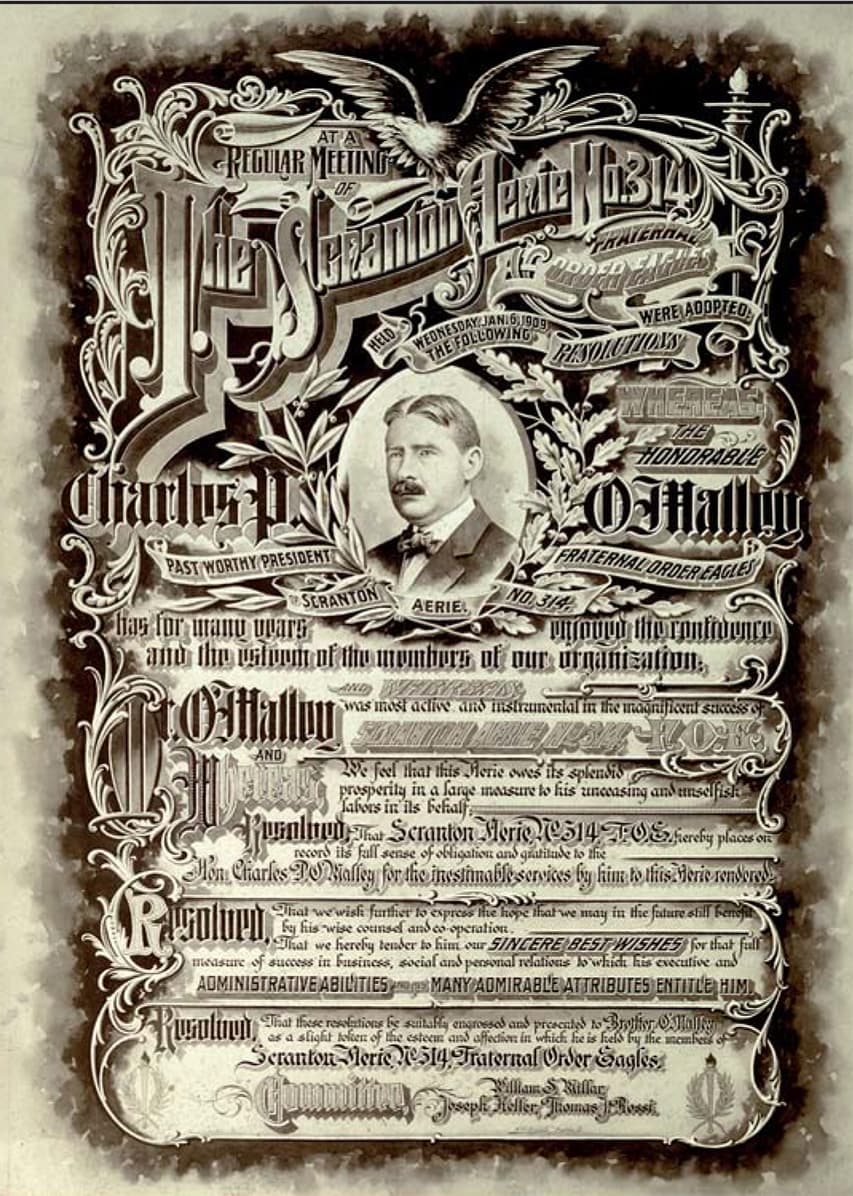 AT A
REGULAR MEETING
OF
The Scranton Aerie No. 314
FRATERNAL
ORDER EAGLES
HELD WEDNESDAY, JAN. 6, 1909
THE FOLLOWING RESOLUTIONS
WERE ADOPTED:
WHEREAS:
THE
HONORABLE
Charles P. O'Malley
PAST WORTHY PRESIDENT FRATERNAL ORDER EAGLES
SCRANTON AERIE. NO. 314,
has for many years enjoyed the confidence
and the esteem of the members of our organization,
AND WHEREAS,
Mr. O'Malley was most active and instrumental in the magnificent success of
SCRANTON AERIE NO. 314 F.O.E.
AND
Whereas, We feel that this Aerie owes its splendid
prosperity in a large measure to his unceasing and unselfish
labors in its behalf,
Resolved, That Scranton Aerie No. 314 F.O.E. hereby places on
record its full sense of obligation and gratitude to the
Hon. Charles P. O'Malley for the inestimable services by him to this Aerie rendered.
Resolved, That we wish further to express the hope that we may in the future still benefit
by his wise counsel and co-operation.
That we hereby tender to him our SINCERE BEST WISHES for that full
measure of success in business, social and personal relations to which his executive and
ADMINISTRATIVE ABILITIES AND HIS MANY ADMIRABLE ATTRIBUTES ENTITLE HIM.
Resolved, That these resolutions be suitably engrossed and presented to Brother O'Malley
as a slight token of the esteem and affection in which he is held by the members of
Scranton Aerie No. 314, Fraternal Order Eagles.
Committee, William S. Millar,
Joseph Heller, Thomas J. Rossi.